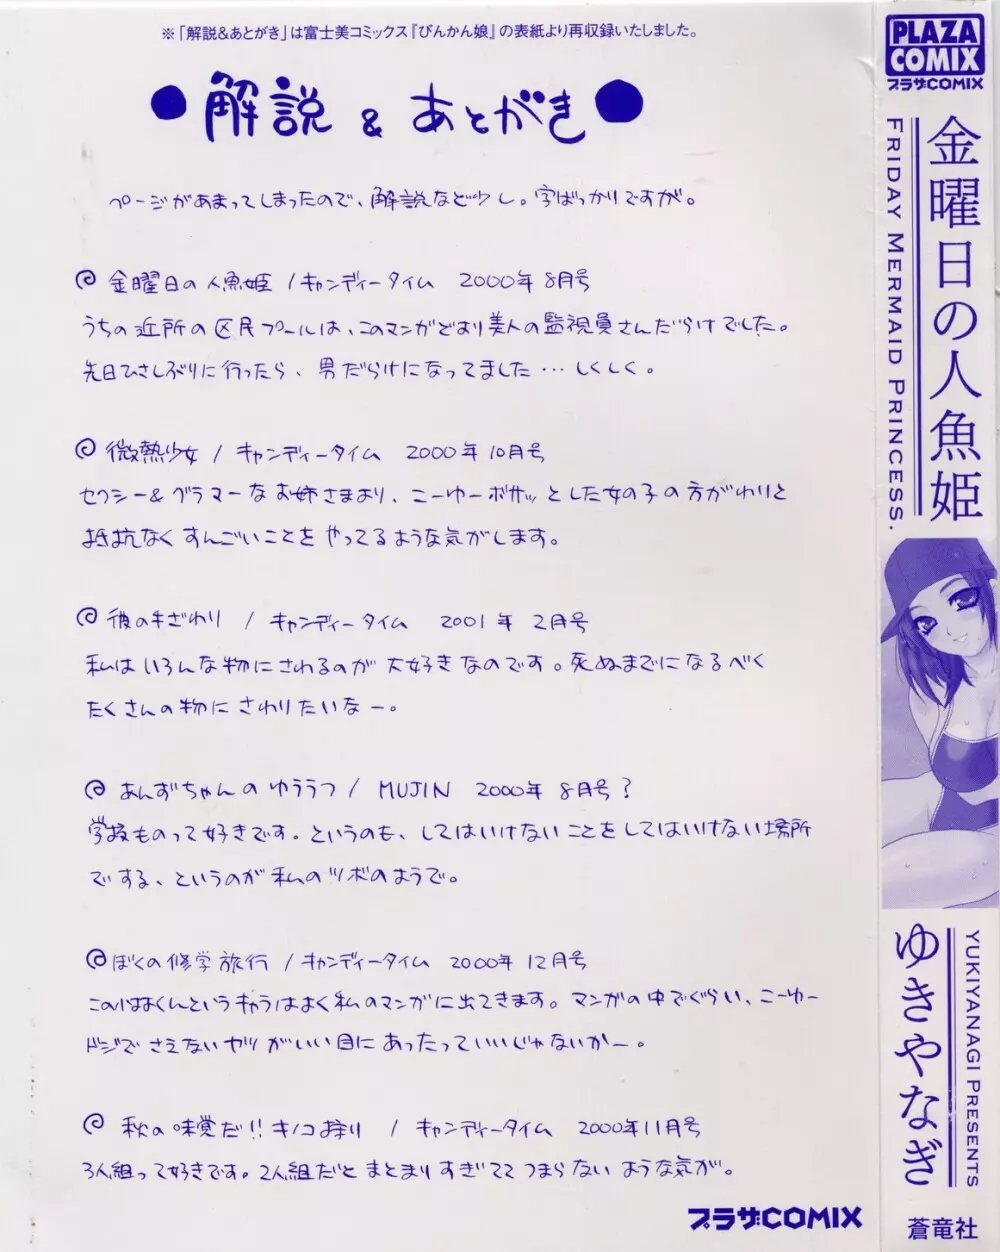 ※「解説&あとがき」は富士美コミックス『びんかん娘』の表紙より再収録いたしました。
●解説 & あとがき●
ページがあまってしまったので、解説など少し。字ばっかりですが。
金曜日の人魚姫 / キャンディータイム 2000年8月号
うちの近所の区民プールは、このマンガどおり美人の監視員さんだらけでした。
先日ひさしぶりに行ったら、男だらけになってました…しくしく。
微熱少女 / キャンディータイム 2000年10月号
セクシー&グラマーなお姉さまより、こーゆーボサッとした女の子の方がわりと
抵抗なくすんごいことをやってるような気がします。
彼の手ざわり / キャンディータイム 2001年2月号
私はいろんな物にさわるのが大好きなのです。死ぬまでになるべく
たくさんの物にさわりたいなー。
あんずちゃんのゆううつ / MUJIN 2000年8月号?
学校ものって好きです。というのも、してはいけないことをしてはいけない場所
でする、というのが私のツボのようで。
ぼくの修学旅行 / キャンディータイム 2000年12月号
このはまくんというキャラはよく私のマンガに出てきます。マンガの中でぐらい、こーゆー
ドジでさえないヤツがいい目にあったっていいじゃないかー。
秋の味覚だ!!キノコ狩り / キャンディータイム 2000年11月号
3人組って好きです。2人組だとまとまりすぎててつまらないような気が。
プラザCOMIX
PLAZA
COMIX
プラザCOMIX
金曜日の人魚姫
FRIDAY MERMAID PRINCESS.
ゆきやなぎ
YUKIYANAGI PRESENTS
蒼竜社